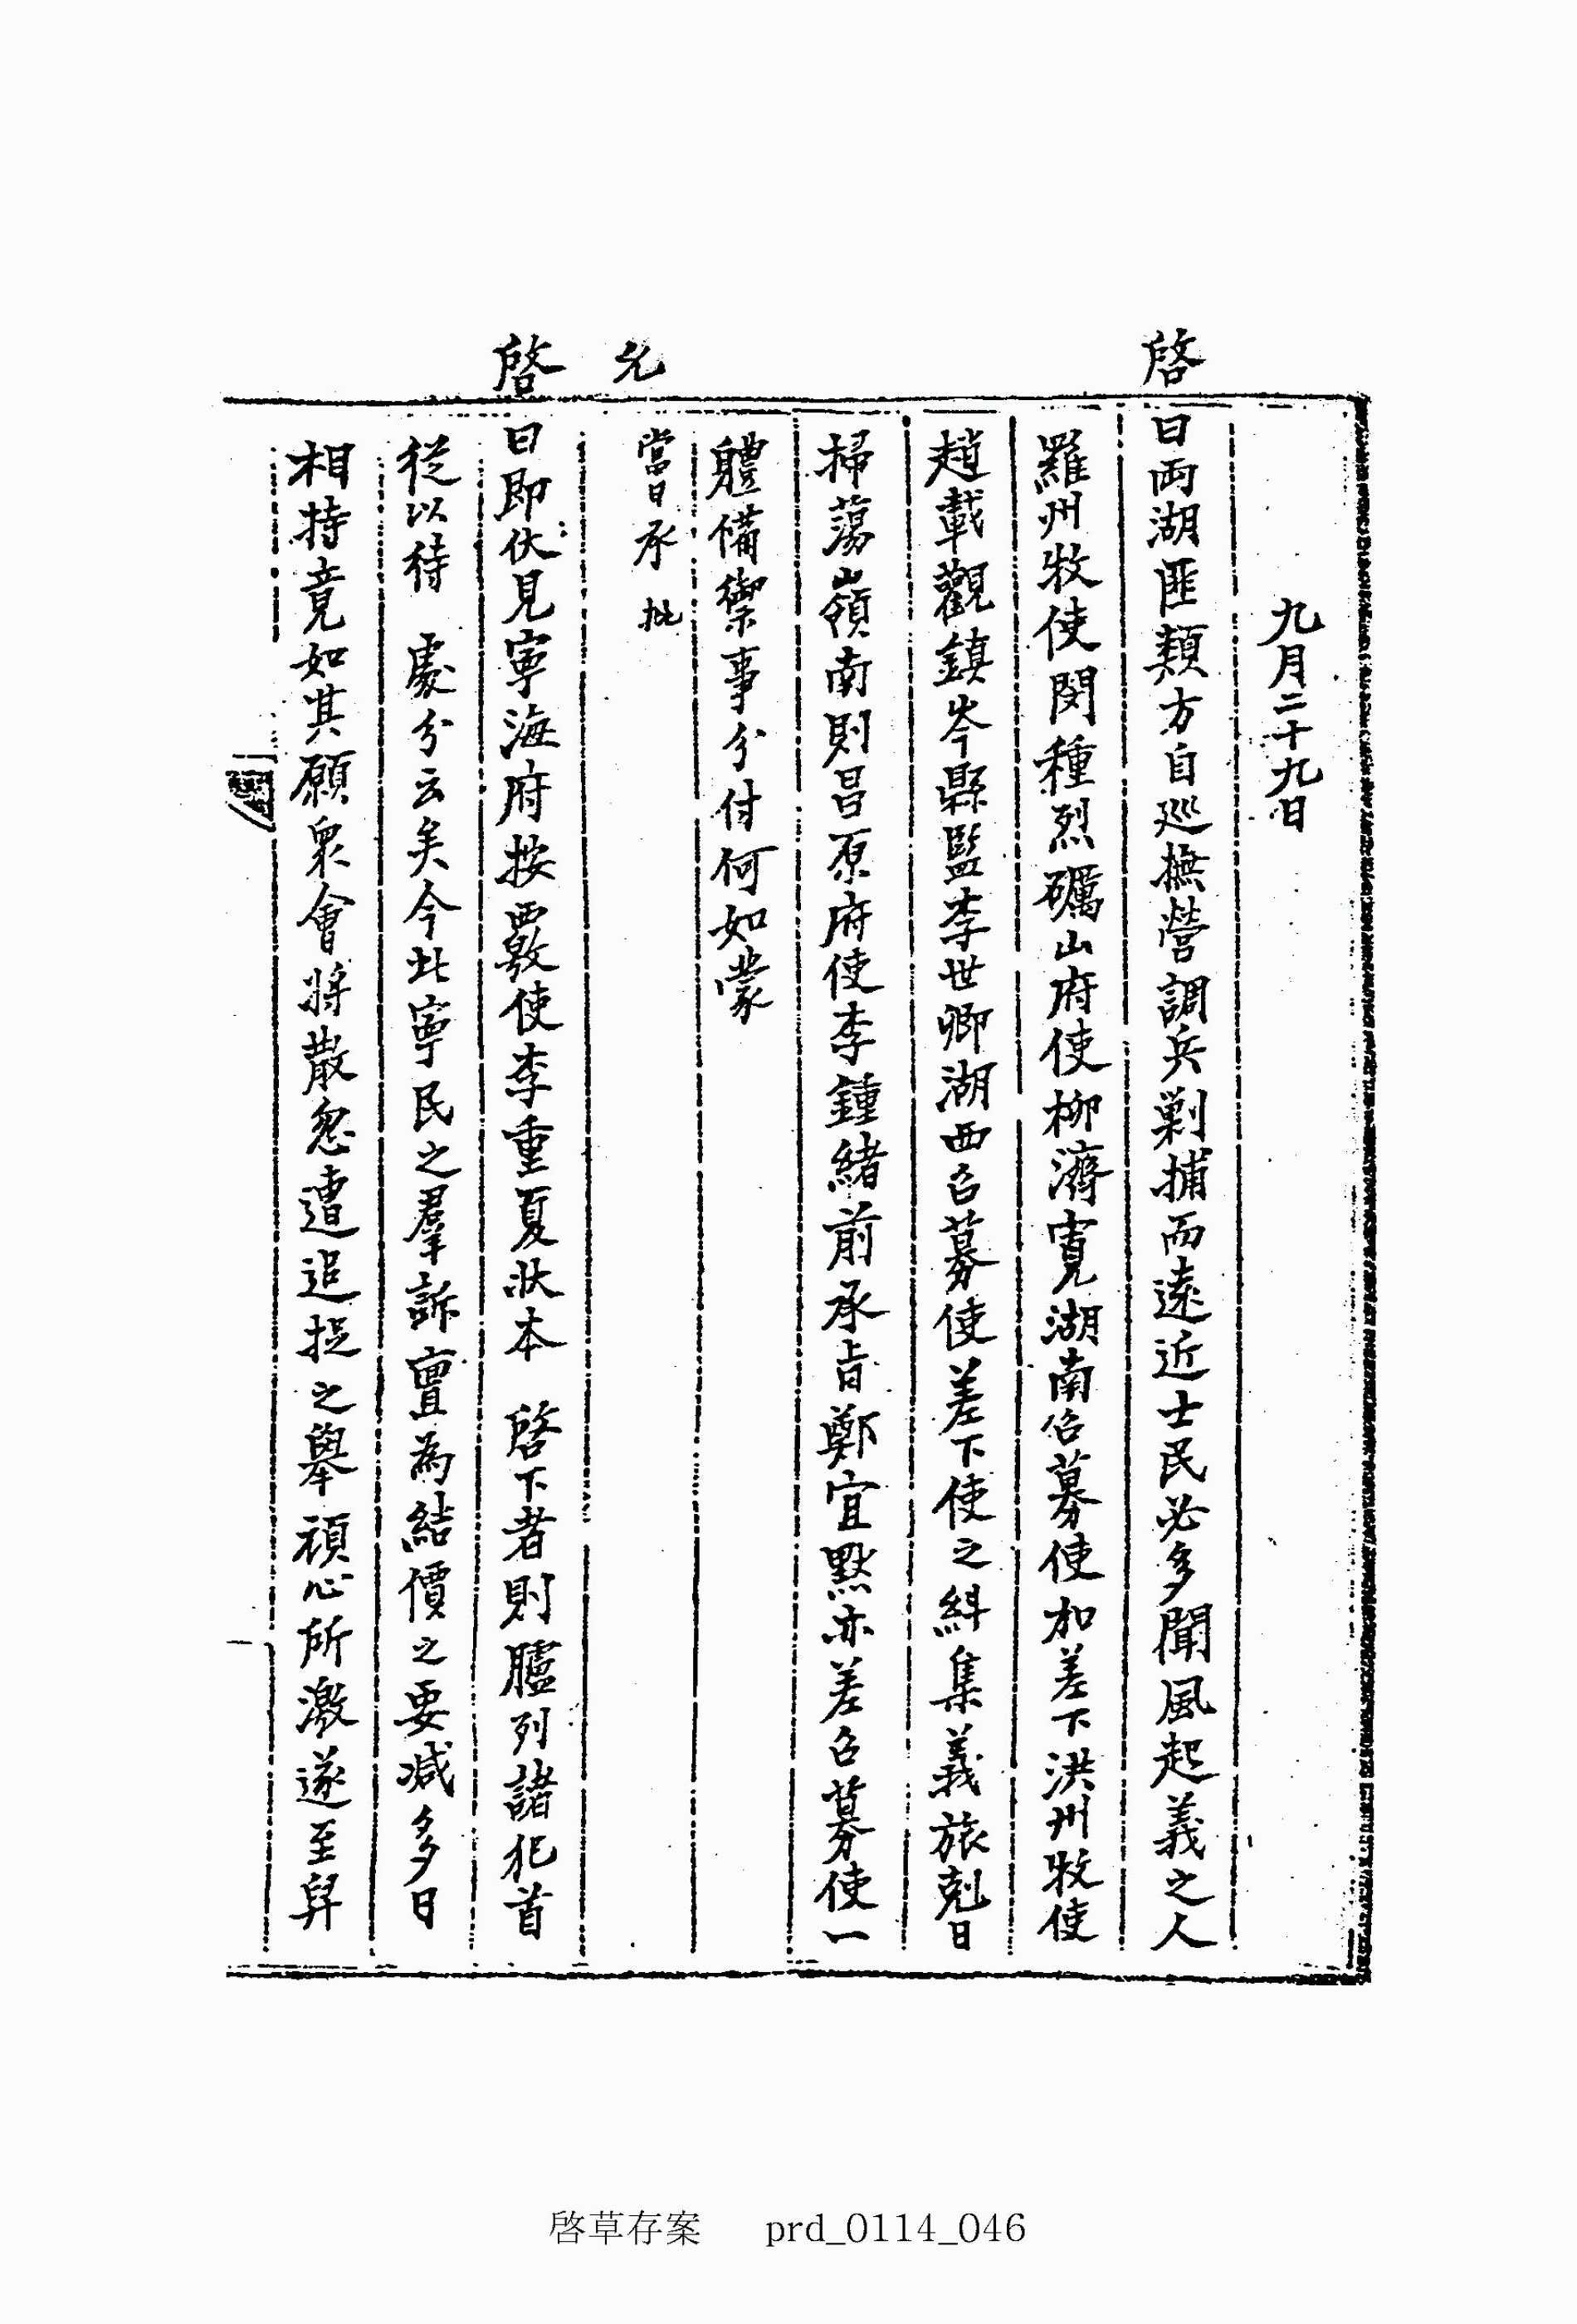 九月二十九日
啓
曰兩湖匪類方自巡撫營調兵剿捕而遠近士民必多聞風起義之人
羅州牧使閔種烈礪山府使柳濟寬湖南召募使加差下洪州牧使
趙載觀鎮岑縣監李世卿湖西召募使差下使之糾集義旅剋日
掃蕩嶺南則昌原府使李鍾緖前承旨鄭宜默亦差召募使一
軆備禦事分付何如蒙
允
當日承 批
啓
曰即伏見寧海府按覈使李重夏狀本 啓下者則臚列諸犯首
從以待 處分云矣今此寧民之羣訴亶為結價之要減多日
相持竟如其願衆會將散忽遭追捉之擧頑心所激遂至舁
啓草存案 prd_0114_046